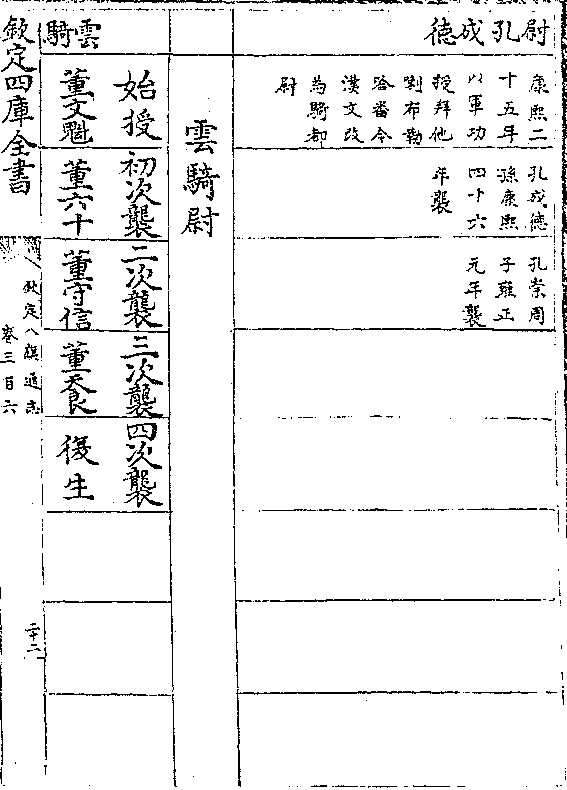 尉孔成德
康熙二
十五年
以軍功
授拜他
喇布勒
哈番今
漢文改
為騎都
尉
孔成德
孫康熙
四十六
年襲
孔崇周
子雍正
元年襲
雲騎尉
雲騎
始授
董文魁
初次襲
董六十
二次襲
董守信
三次襲
董天良
四次襲
復生
欽定四庫全書
欽定八旗通志
卷三百六
二十二